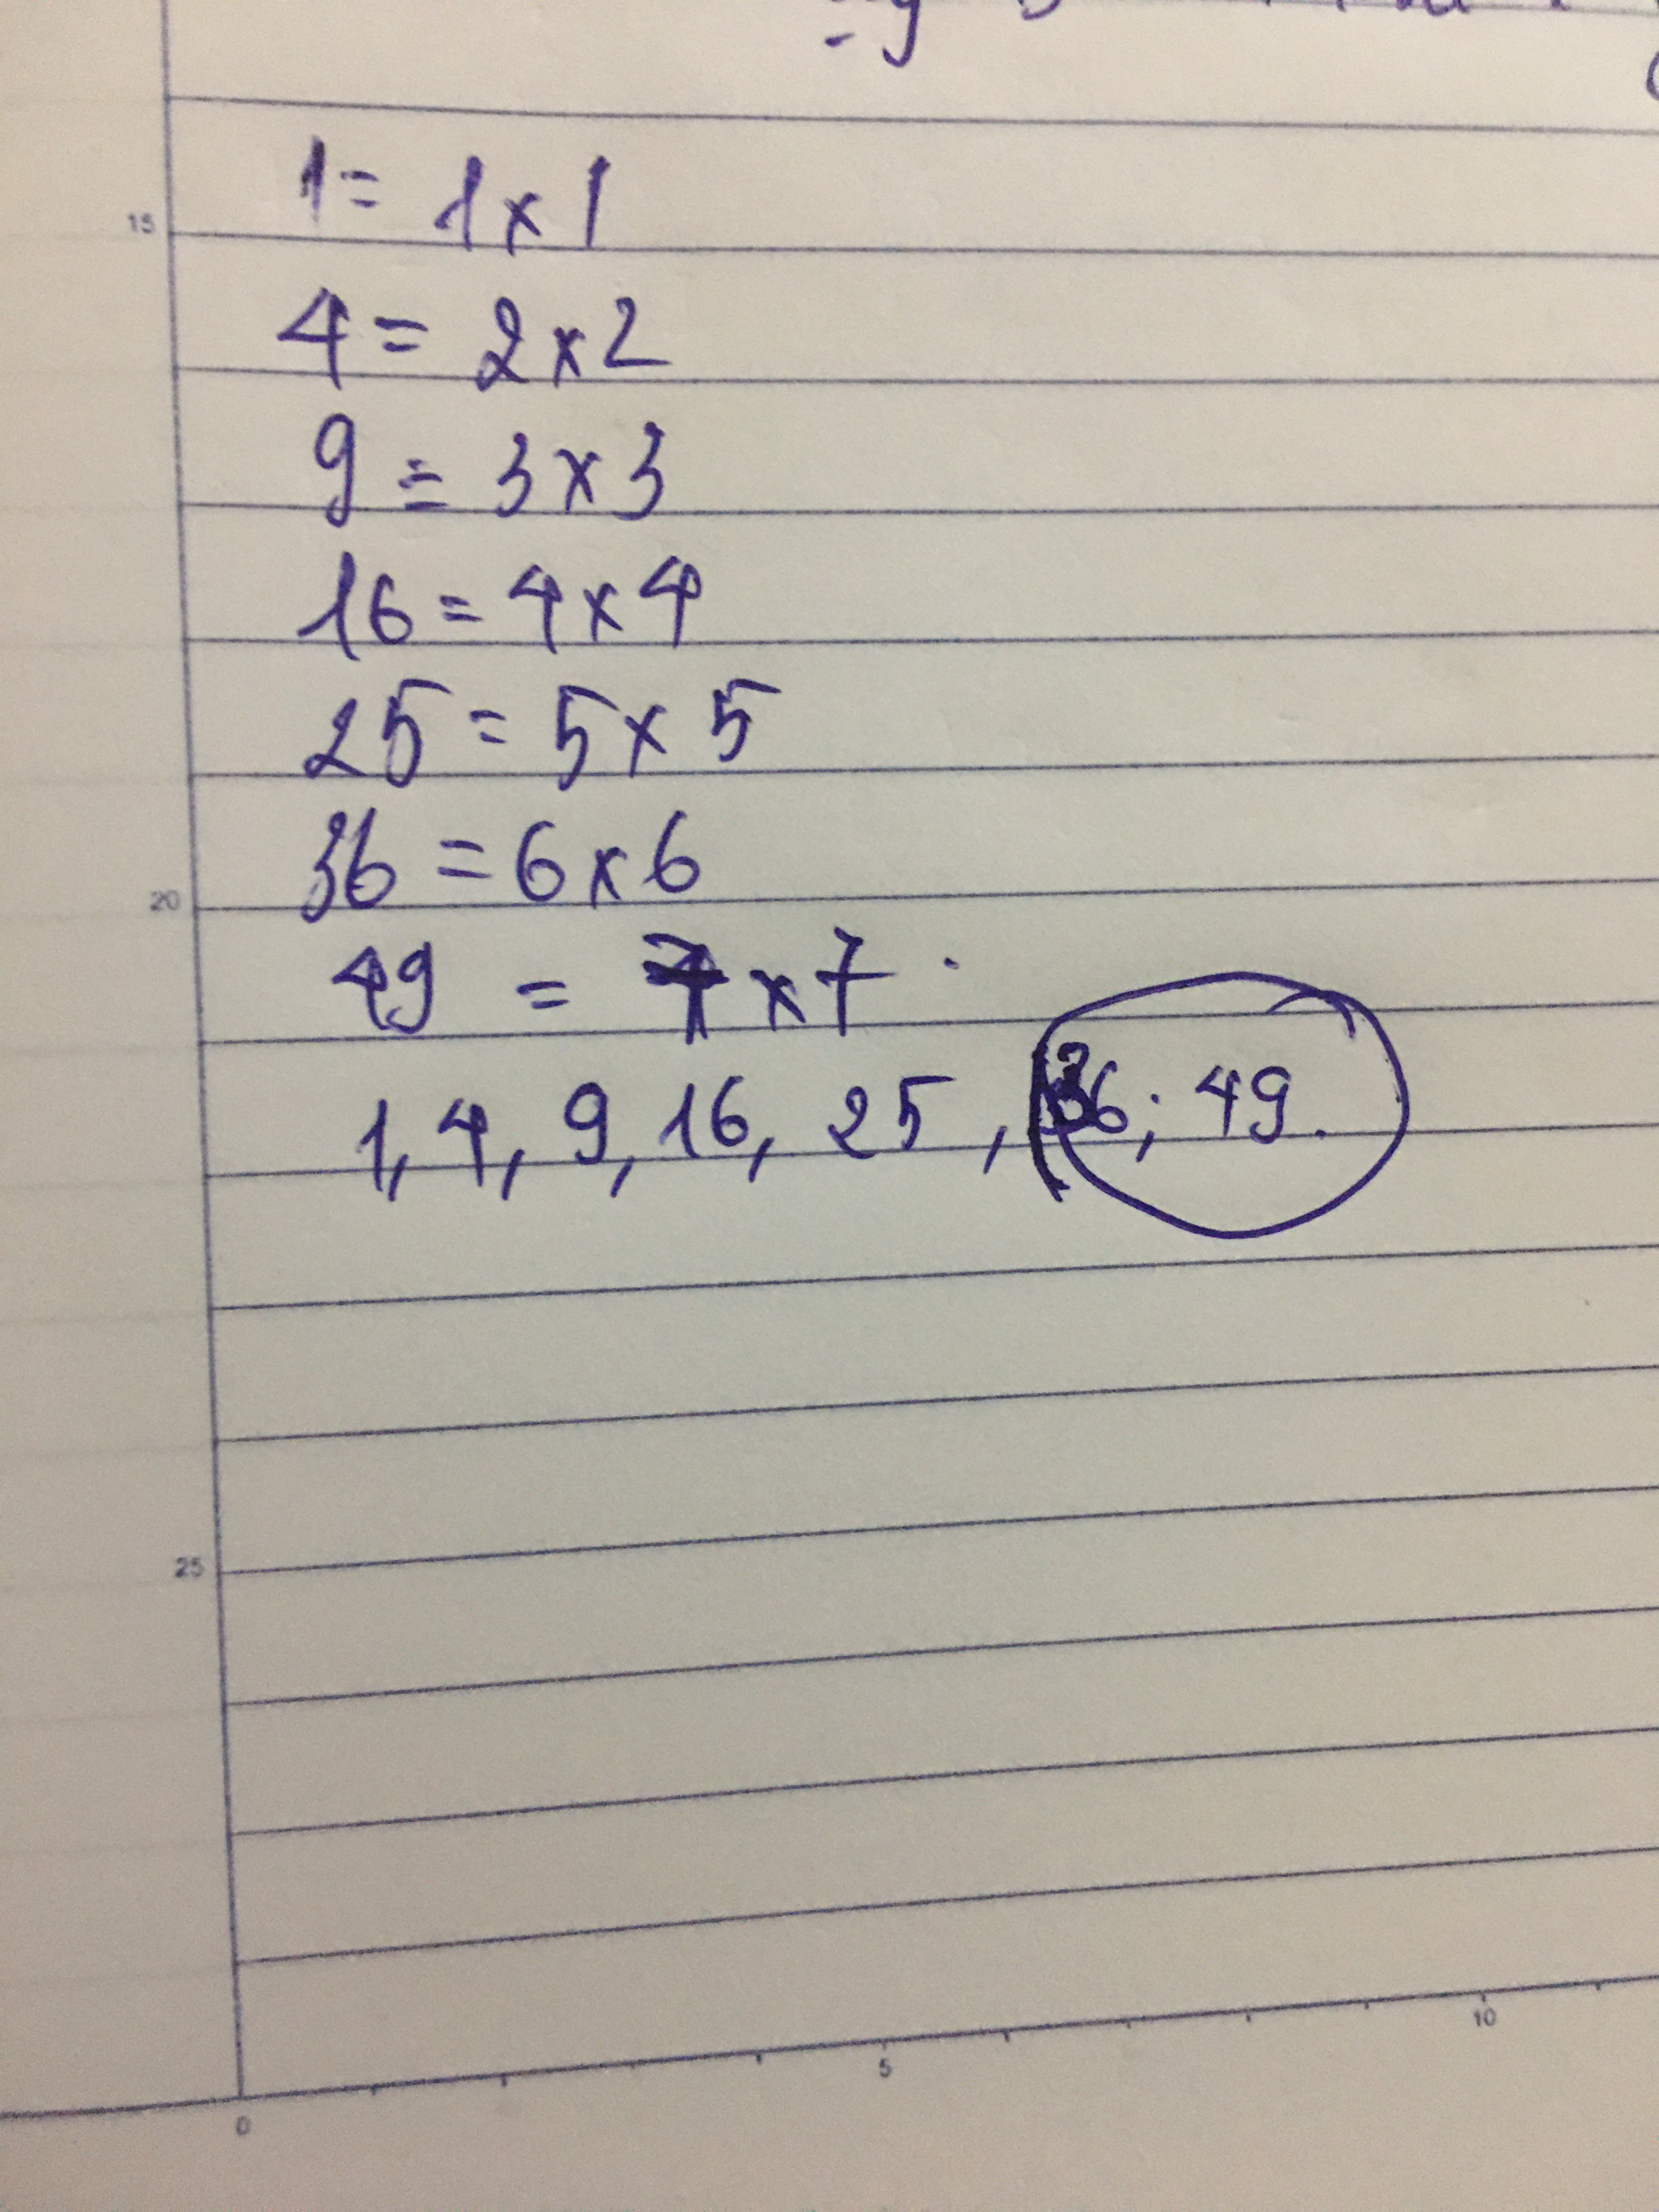 1 = 1 x 1
15
4 = 2 x 2
9 = 3 x 3
16 = 4 x 4
25 = 5 x 5
36 = 6 x 6
20
49 = 7 x 7 .
1, 4, 9, 16, 25, 36; 49.
25
0 5 10